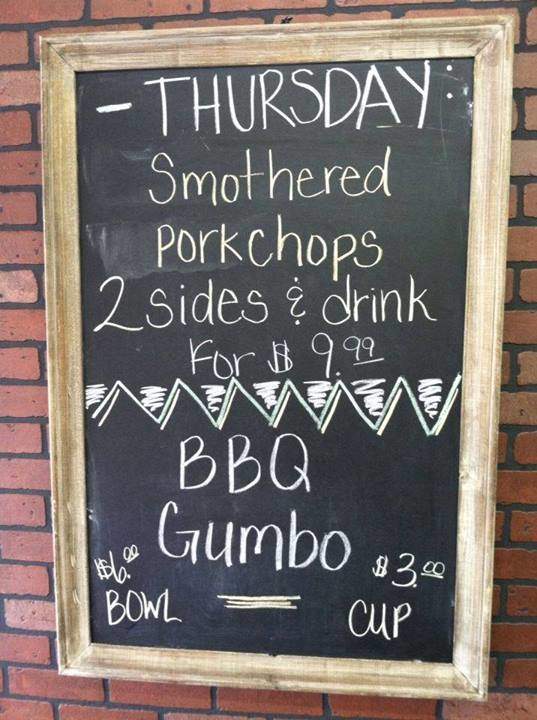 - THURSDAY:
Smothered
Porkchops
2 sides & drink
For $ 9.99
BBQ
Gumbo
$6.00 $3.00
BOWL CUP